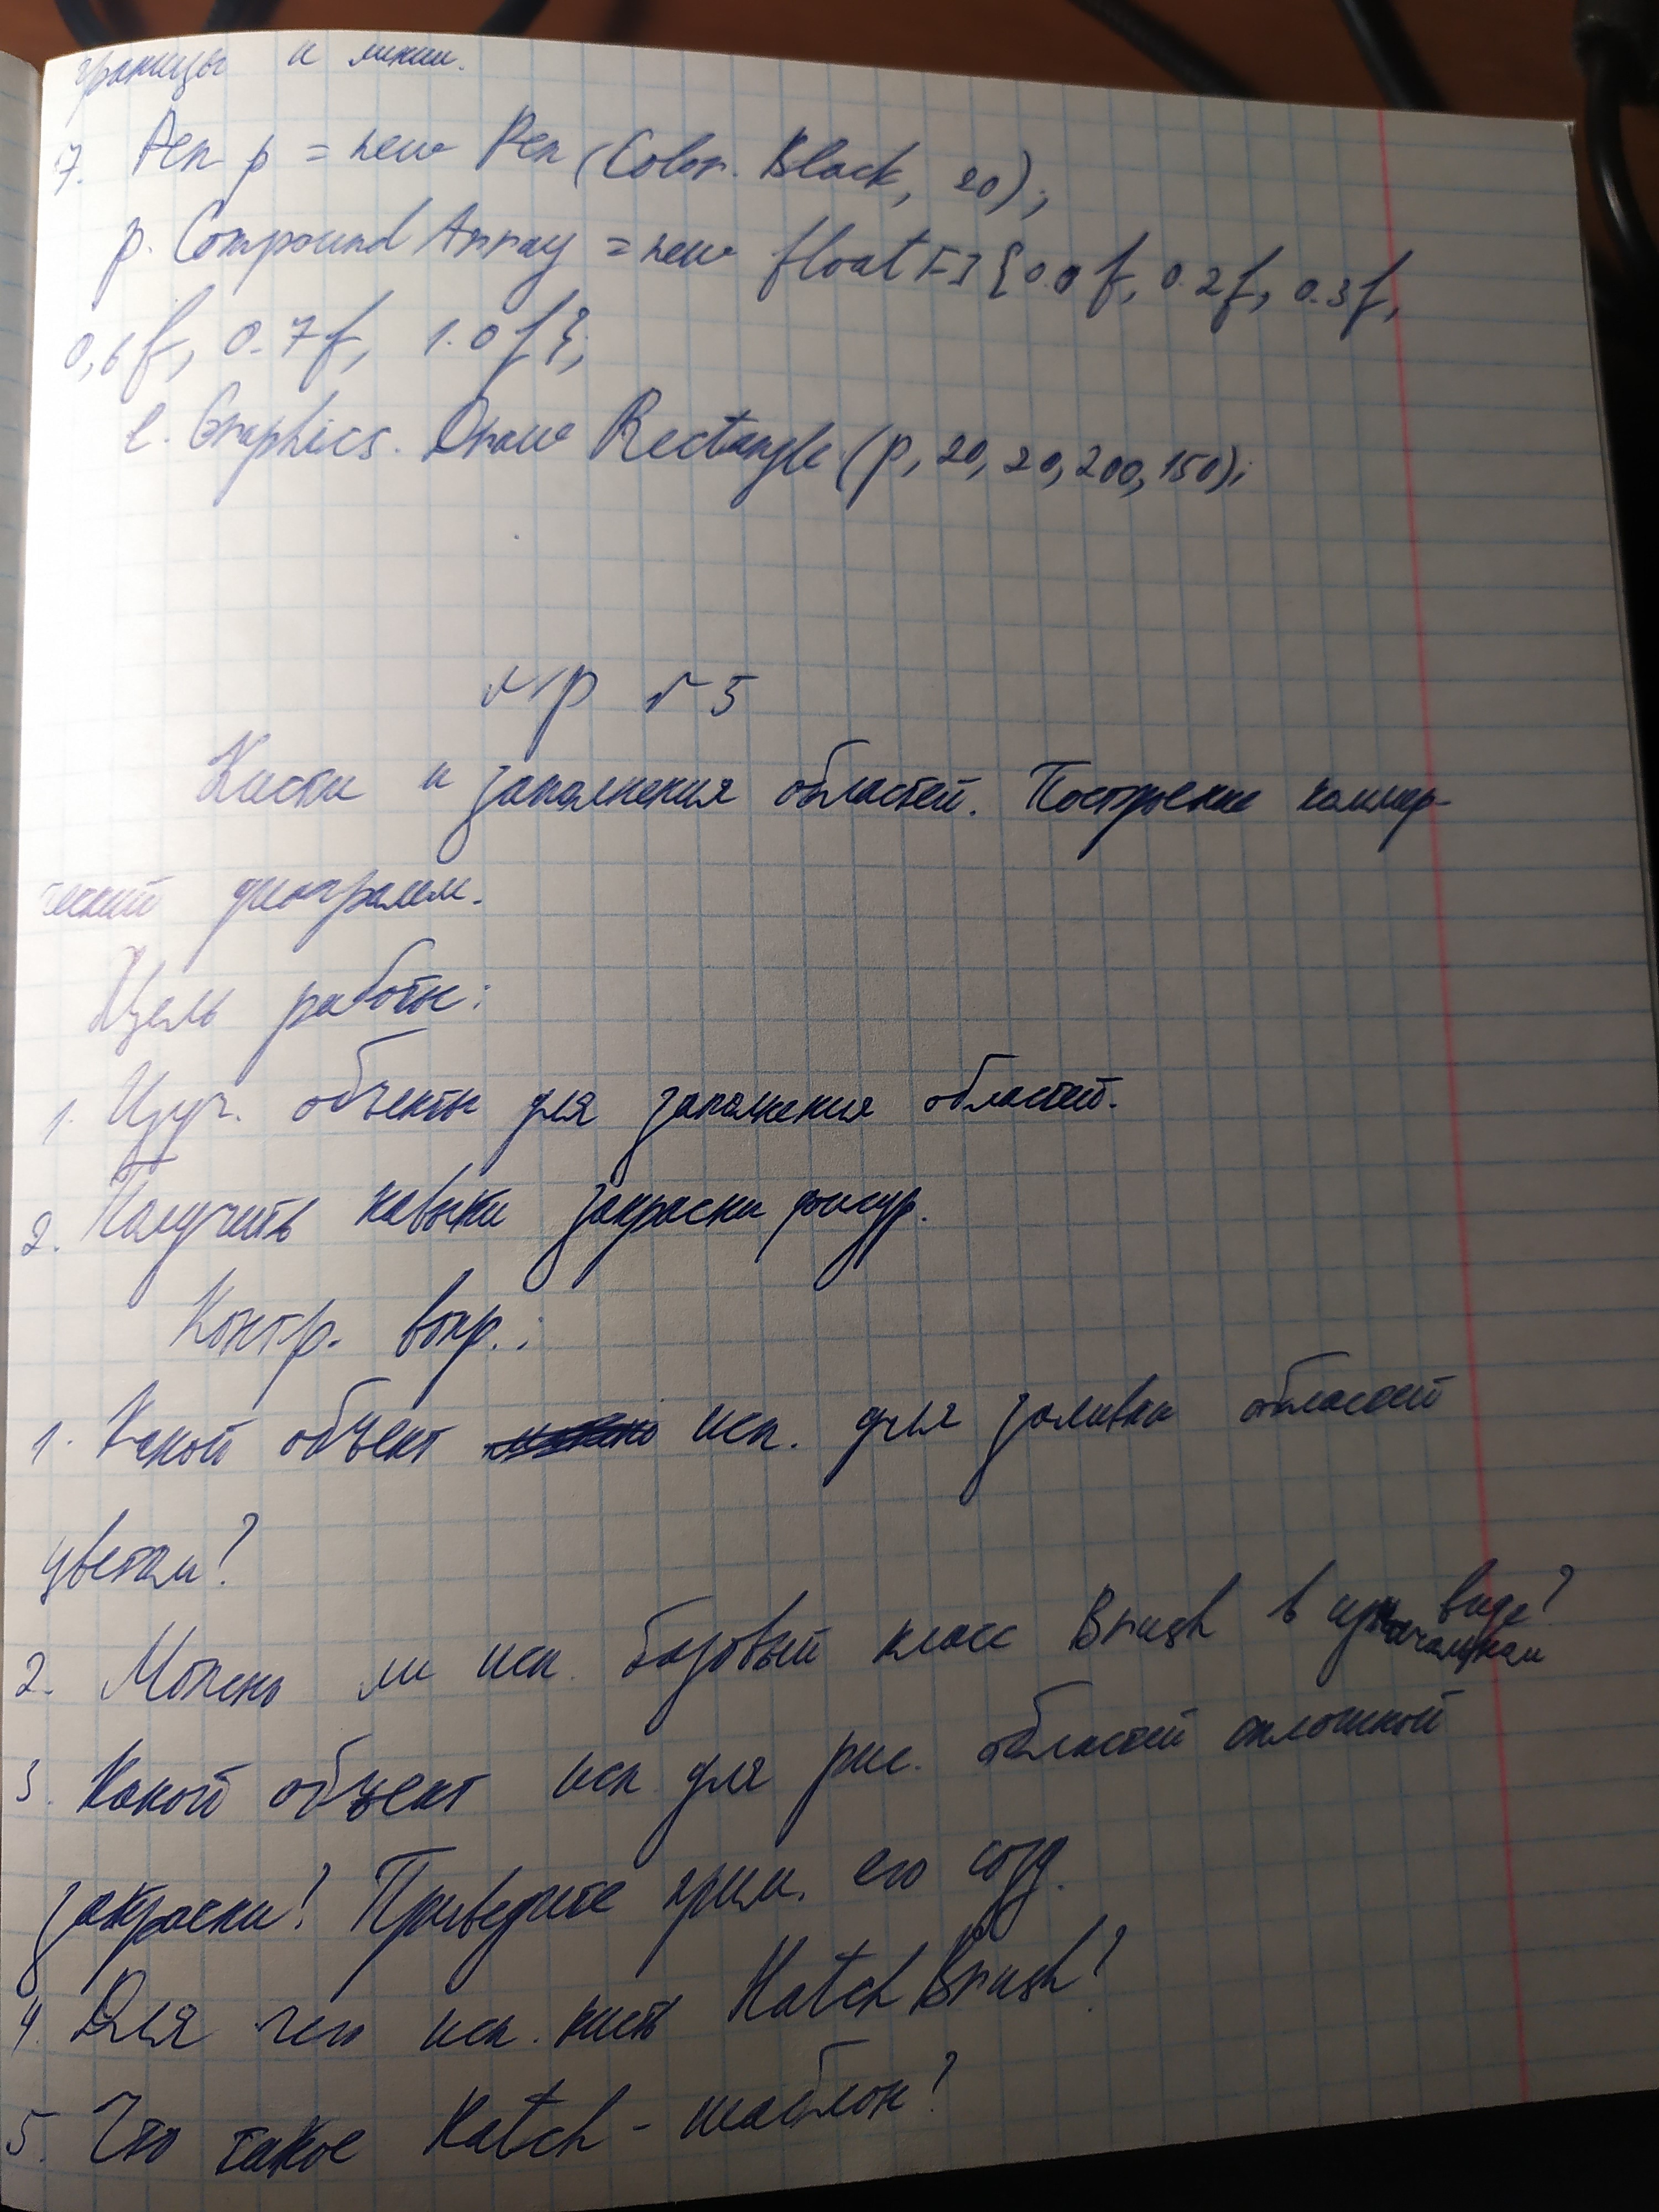 границы и линии.
7. Pen p = new Pen (Color. Black, 20);
p. Compound Array = new float [] {0.0f, 0.2f, 0.3f,
0,6f, 0.7f, 1.0f};
e. Graphics. Draw Rectangle (p, 20, 20, 200, 150);
л/р №5
Кисти и заполнения областей. Построение коммер-
ческий диограмм.
Цель работы:
1. Изуч. объекты для заполнения областей.
2. Получить навыки закраски фигур.
Контр. вопр.:
1. Какой объект исп. для заливки областей
цветом?
2. Можно ли исп. базовый класс Brush в изначальном виде?
3. Какой объект исп для рис. областей сплошной
закраски? Приведите прим. его созд.
4. Для чего исп. кисть Hatch Brush?
5. Что такое Hatch - шаблон?